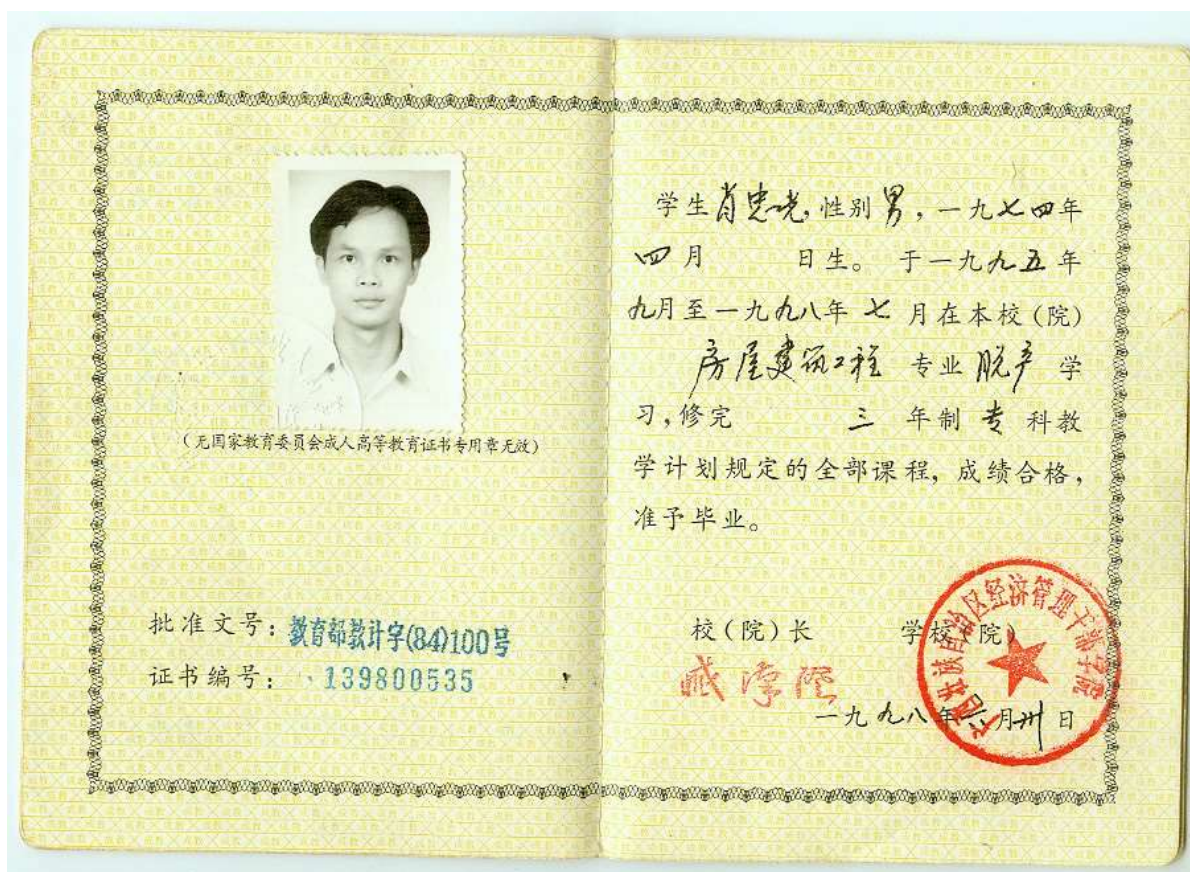 (无国家教育委员会成人高等教育证书专用章无效)
批准文号：教育部教计字(84)100号
证书编号：139800535
学生肖忠光,性别男,一九七四年
四月 日生。于一九九五年
九月至一九九八年七月在本校(院)
房屋建筑工程 专业 脱产 学
习,修完 三 年制 专 科教
学计划规定的全部课程,成绩合格,
准予毕业。
校(院)长 学校(院)
广西壮族自治区经济管理干部学院
一九九八年六月卅日